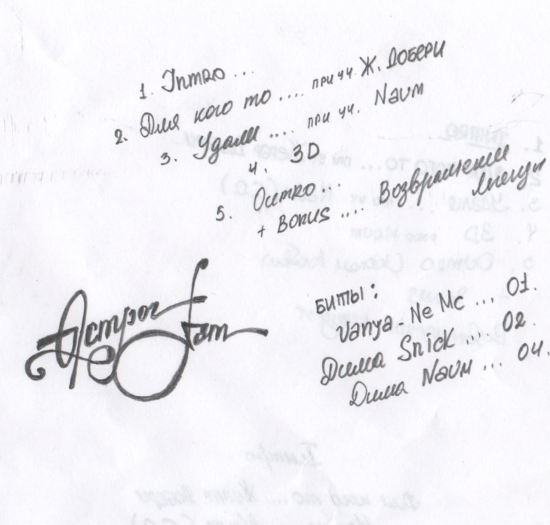 1. Intro ...
2. Для кого то .... при уч. Ж. Добери
3. Удали .... при уч. Naum
4. 3D
5. Оитро ...
+ Bonus .... Возвращение
Астрог
Биты:
Vanya Ne Mc ... 01.
Дима Snick ... 02.
Дима Naum ... 04.